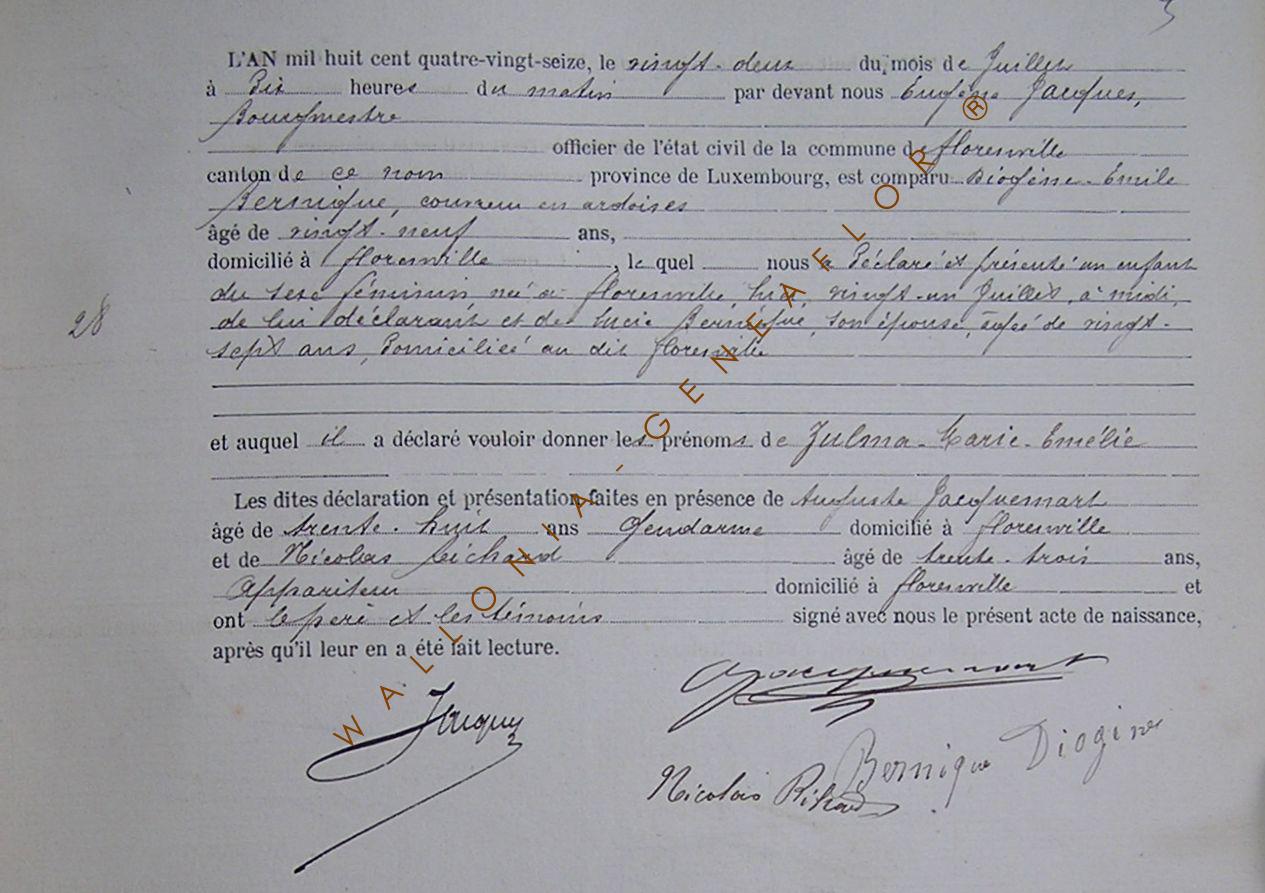 L'AN mil huit cent quatre-vingt-seize, le vingt-deux du mois de Juillet
à Dix heures du matin par devant nous Eugène Jacques,
Bourgmestre
officier de l'état civil de la commune de florenville
canton de ce nom province de Luxembourg, est comparu Diogène-Emile
Bernique, couvreur en ardoises
âgé de vingt-neuf ans,
domicilié à florenville, lequel nous a Déclaré et présenté un enfant
du sexe féminin, né à florenville, hier, vingt-un Juillet, à midi,
28
de lui déclarant et de Lucie Bernique, son épouse, âgée de vingt-
sept ans, Domiciliée au dit florenville
et auquel il a déclaré vouloir donner les prénoms de Zulma-Marie-Emélie
Les dites déclaration et présentation faites en présence de Auguste Jacquemart
âgé de trente-huit ans Gendarme domicilié à florenville
et de Nicolas Richard âgé de trente-trois ans,
Appariteur domicilié à florenville et
ont le père et les témoins signé avec nous le présent acte de naissance,
après qu'il leur en a été fait lecture.
Jacquemart
Jacques
Bernique Diogène
Nicolas Richard
WALLONIA-GENEAFLOR®